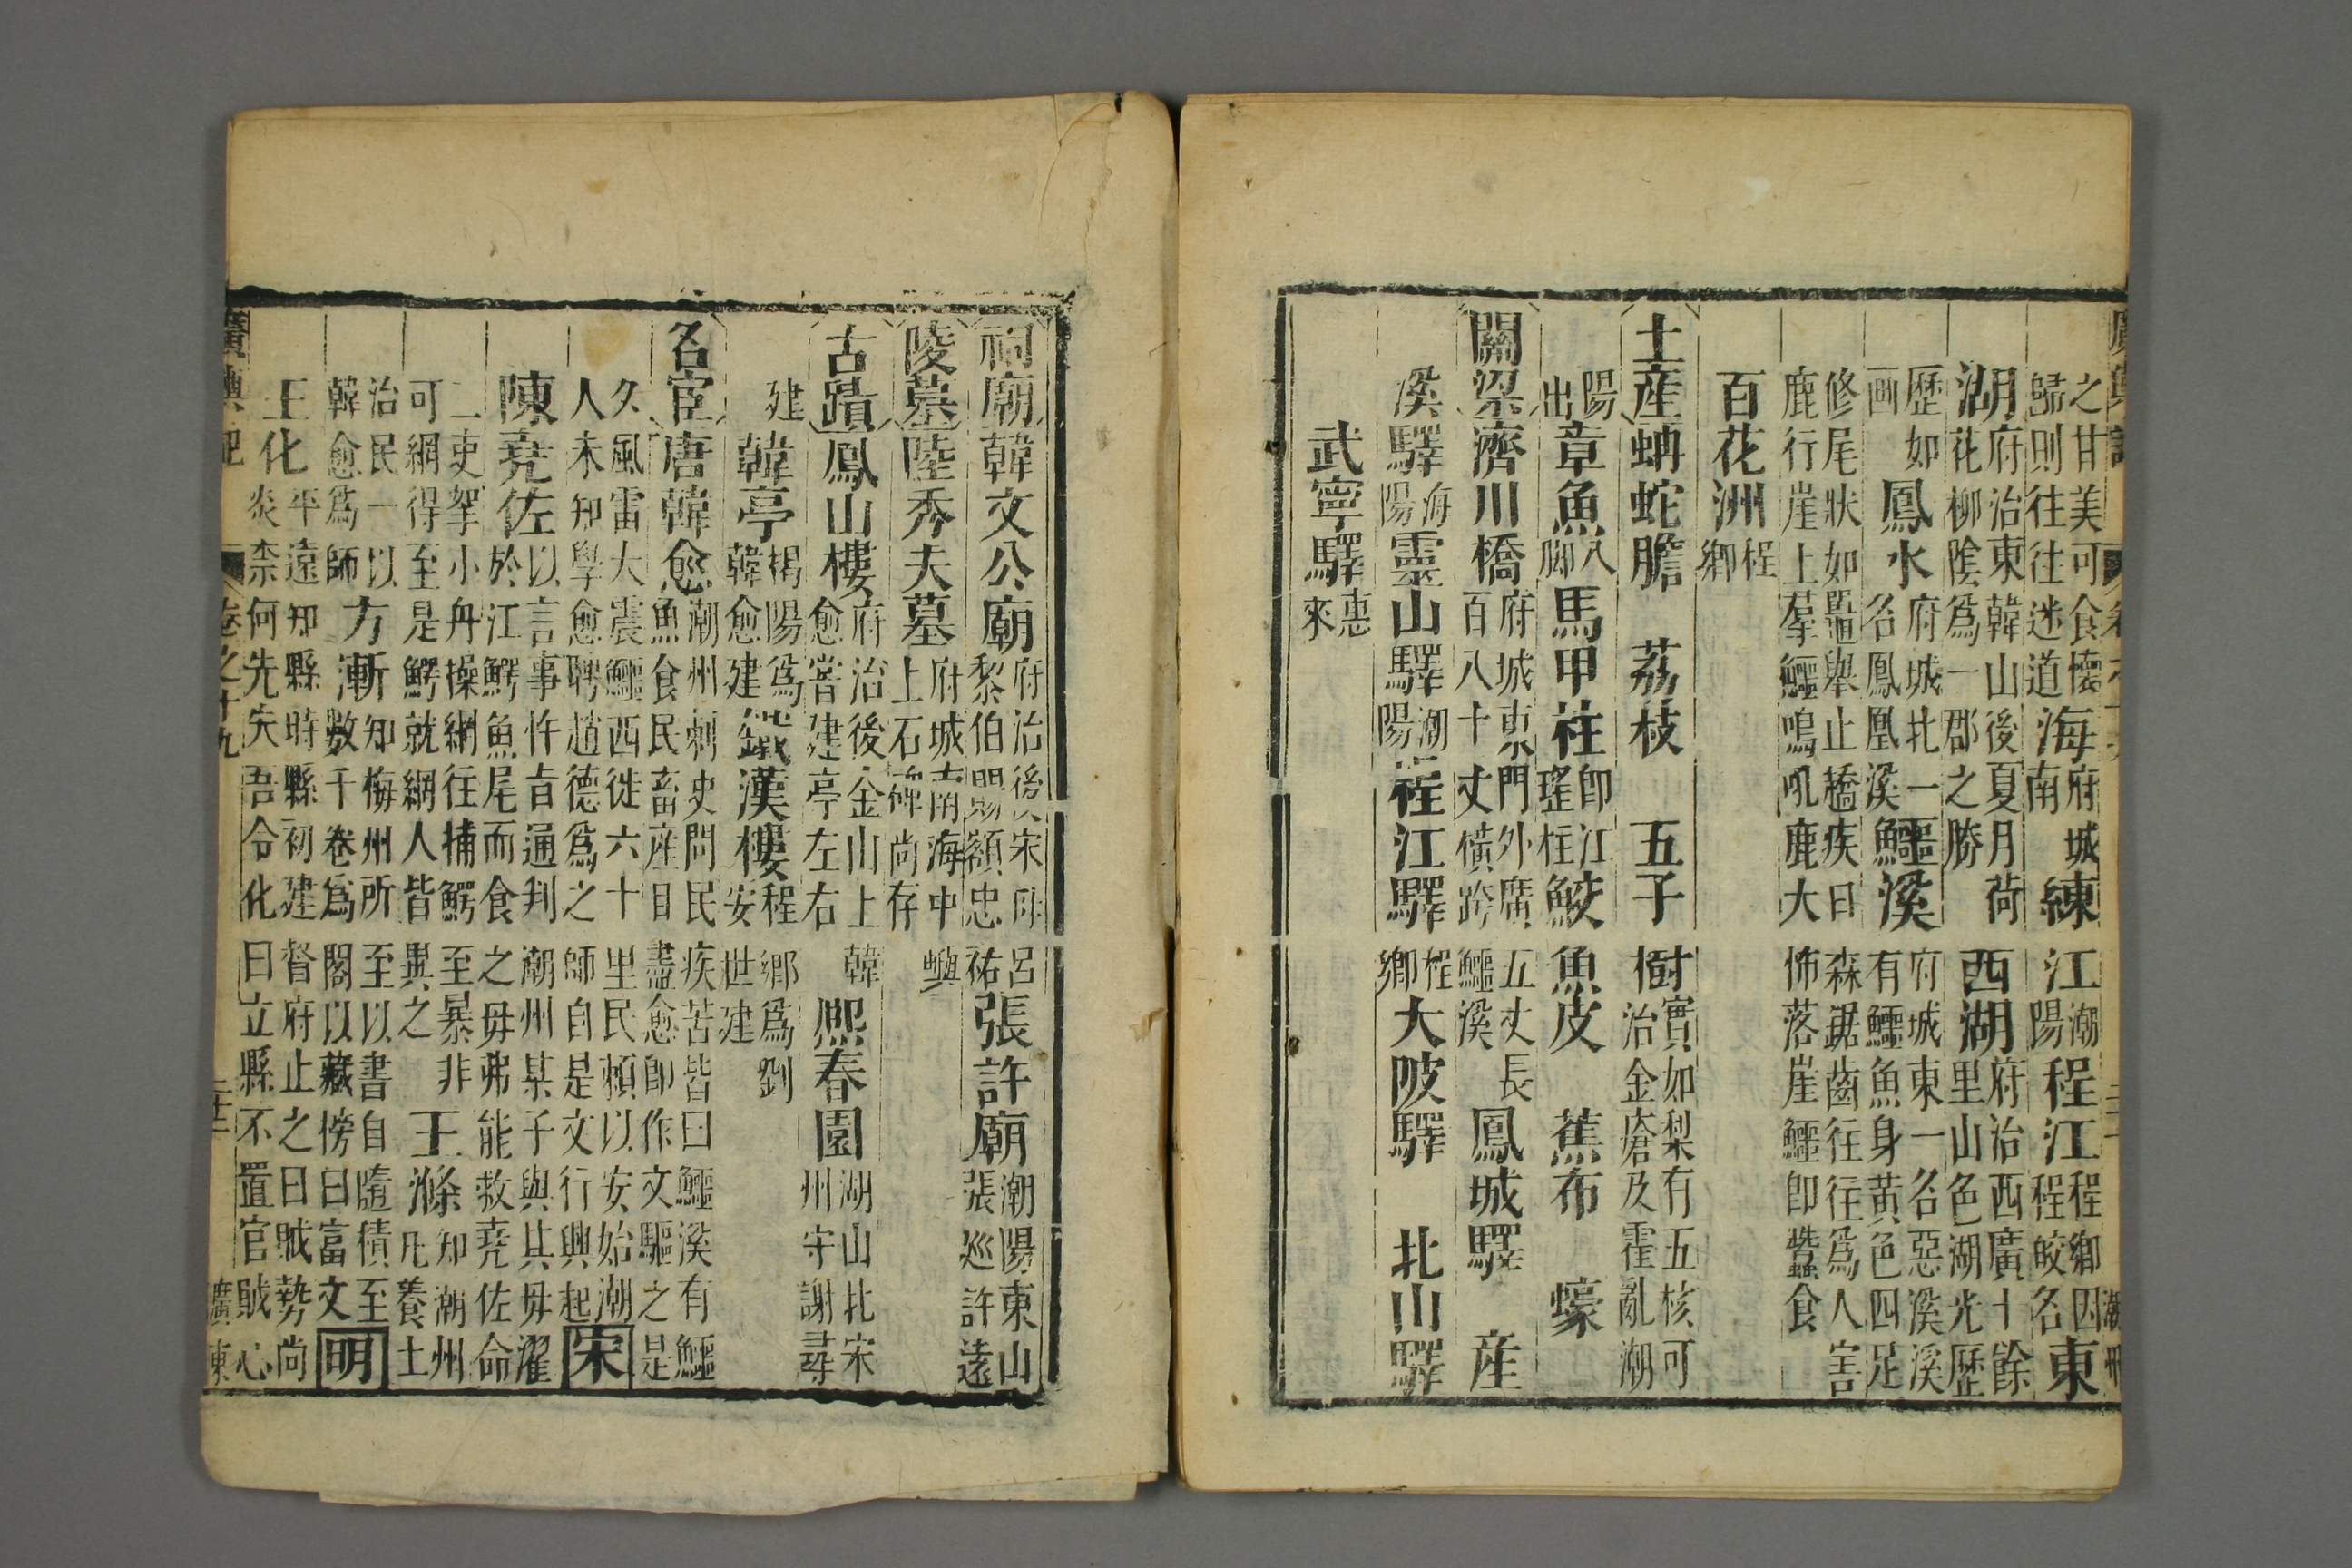 之甘美可食懷歸則往往迷道海府城南練江潮陽程江程鄉因程皎名東
湖府治東韓山後夏月荷花柳陰為一郡之勝西湖府治西廣十餘里山色湖光歷
歷如画鳳水府城北一名鳳凰溪鱷溪府城東一名惡溪溪有鱷魚身黃色四足
修尾狀如鼉舉止趫疾日森鋸齒往往為人害鹿行崖上羣鱷鳴吼鹿大怖落崖鱷即蠶食
百花洲程鄉
土産蚺蛇膽 荔枝 五子樹實如梨有五核可治金瘡及霍亂潮
陽出章魚八脚馬甲柱即江瑤柱鮫魚皮 蕉布 蠔
關梁濟川橋府城東門外廣五丈長百八十丈橫跨鱷溪鳳城驛 産
溪驛海陽靈山驛潮陽程江驛程鄉大陂驛 北山驛
武寧驛惠來
祠廟韓文公廟府治後宋呂黎伯賜額忠祐張許廟潮陽東山張巡許遠
陵墓陸秀夫墓府城南海中嶼上石碑尚存
古蹟鳳山樓府治後金山上韓愈嘗建亭左右熈春園湖山北宋州守謝尋
建韓亭揭陽為韓愈建鐵漢樓程鄉為劉安世建
名宦唐韓愈潮州刺史問民疾苦皆曰鱷溪有鱷魚食民畜産且盡愈即作文驅之是
久風雷大震鱷西徙六十里民頼以安始潮人未知學愈聘趙德為之師自是文行興起宋
陳堯佐以言事忤旨通判潮州某子與其母濯於江鰐魚尾而食之母弗能救堯佐命
二吏拏小舟操網往捕鰐至暴非可網得至是鰐就網人皆異之王滌知潮州凡養士
治民一以韓愈為師方漸知梅州所至以書自隨積至數千卷為閣以藏傍曰富文明
王化平遠知縣時縣初建督府止之曰賊勢尚炎柰何先失吾令化曰立縣不置官賊心
廣輿記 卷之十九 二十二 廣東